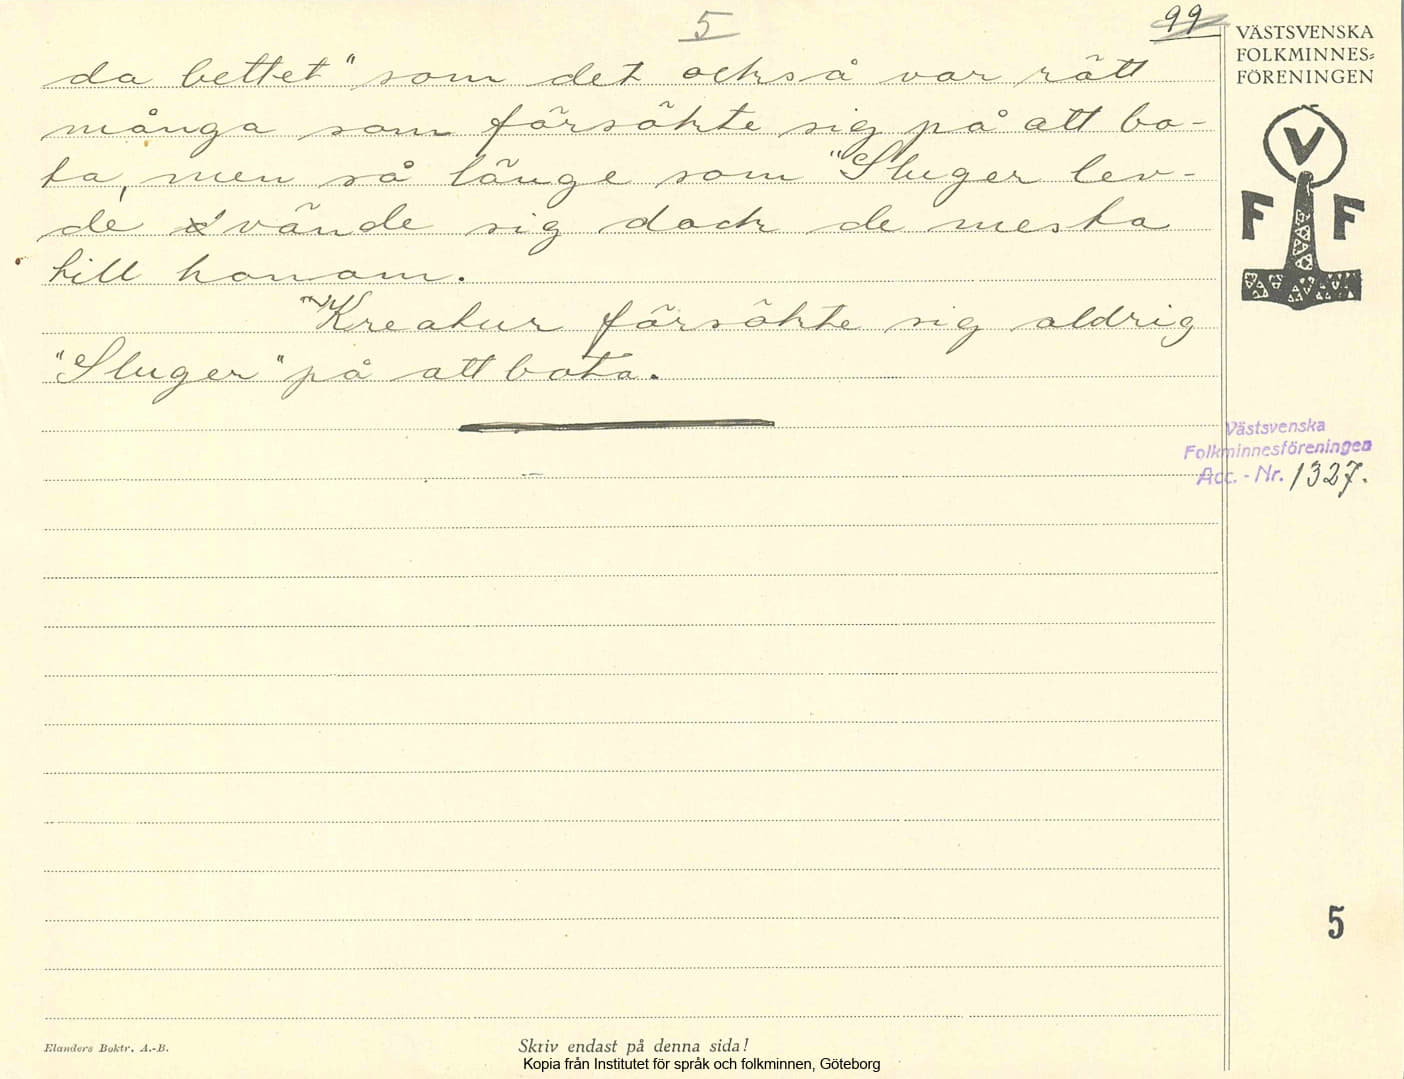 5
99
VÄSTSVENSKA
FOLKMINNES=
FÖRENINGEN
V
F F
da bettet" som det också var rätt
många som försökte sig på att bo-
ta, men så länge som "Sluger lev-
de vände sig dock de mesta
till honom.
"Kreatur försökte sig aldrig
"Sluger" på att bota.
Västsvenska
Folkminnesföreningen
Acc. - Nr. 1327.
5
Elanders Boktr. A.-B.
Skriv endast på denna sida!
Kopia från Institutet för språk och folkminnen, Göteborg